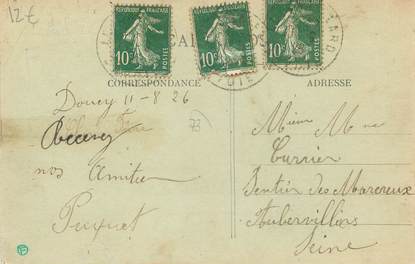 12€
REPUBLIQUE FRANÇAISE
10c
POSTES
REPUBLIQUE FRANÇAISE
10c
POSTES
REPUBLIQUE FRANÇAISE
10c
POSTES
CORRESPONDANCE
Doucy 11-8 26
Recevez
nos Amities
73
ADRESSE
Mr
Currier
Sentier des Marereux
Aubervilliers
Seine